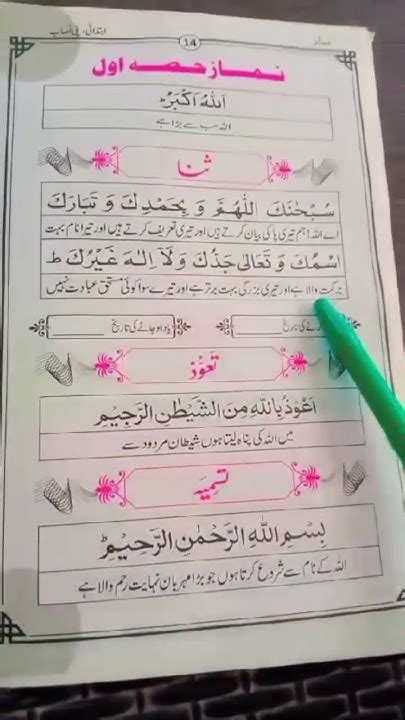 ابتدائی دینی نصاب 14 نماز
نماز حصہ اول
اَللّٰهُ اَكْبَرُ ط
اللہ سب سے بڑا ہے
ثنا
سُبْحٰنَكَ اللّٰهُمَّ وَ بِحَمْدِكَ وَ تَبَارَكَ
اے اللہ! ہم تیری پاکی بیان کرتے ہیں اور تیری تعریف کرتے ہیں اور تیرا نام بہت
اسْمُكَ وَ تَعَالٰى جَدُّكَ وَ لَآ اِلٰهَ غَيْرُكَ ط
برکت والا ہے اور تیری بزرگی بہت برتر ہے اور تیرے سوا کوئی مستحق عبادت نہیں
کرنے کی تاریخ
یاد ہو جانے کی تاریخ
تعوّذ
اَعُوْذُ بِاللّٰهِ مِنَ الشَّيْطٰنِ الرَّجِيْمِ
میں اللہ کی پناہ لیتا ہوں شیطان مردود سے
تسمیہ
بِسْمِ اللّٰهِ الرَّحْمٰنِ الرَّحِيْمِ ط
اللہ کے نام سے شروع کرتا ہوں جو بڑا مہربان نہایت رحم والا ہے